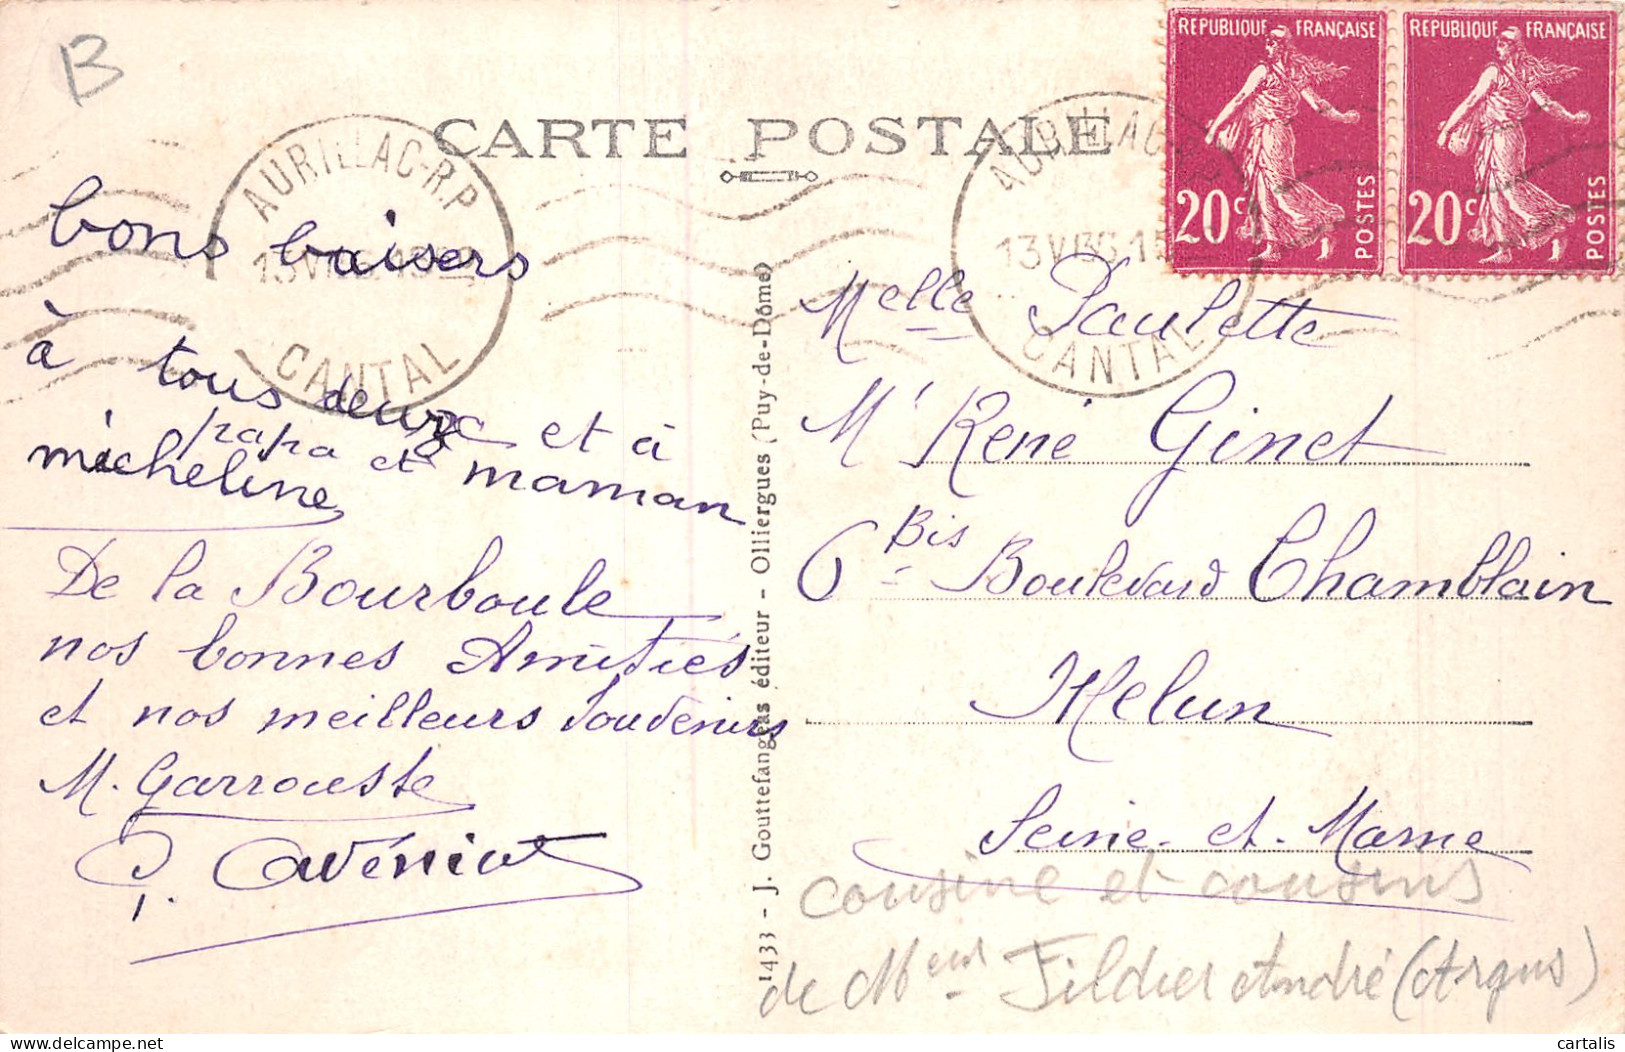 B
CARTE POSTALE
REPUBLIQUE FRANÇAISE
20c
POSTES
REPUBLIQUE FRANÇAISE
20c
POSTES
AURILLAC-R.P.
CANTAL
AURILLAC-R.P.
13 VI 36
CANTAL
bons baisers
à tous deux et à
papa et maman
micheline
De la Bourboule
nos bonnes Amitiés
et nos meilleurs Souvenirs
M. Garrouste
P.
1433 - J. Gouttefangeas éditeur - Olliergues (Puy-de-Dôme)
Melle Paulette
Mr René Ginet
6 Bis Boulevard Chamblain
Melun
Seine-et-Marne
cousine et cousins
de Monsieur Fildier André (Argus)
cartalis
delcampe.net